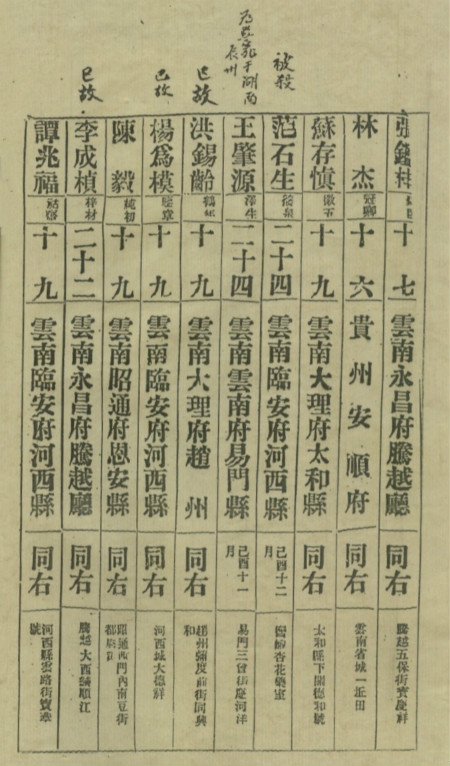 張 十七 雲南永昌府騰越廳 同右 騰越五保街寶慶祥
林杰 冠卿 十六 貴州安順府 同右 雲南省城一丘田
蘇存慎 十九 雲南大理府太和縣 同右 太和縣下關德和號
被殺 范石生 二十四 雲南臨安府河西縣 己酉十二月
于湖南 州 王肇源 二十四 雲南雲南府易門縣 己酉十一月
已故 洪錫齡 十九 雲南大理府趙州 同右 趙州彌度前街同興和
已故 楊爲模 十九 雲南臨安府河西縣 同右 河西城大德祥
陳毅 純初 十九 雲南昭通府恩安縣 同右 昭通西門內南豆街
已故 李成楨 梓材 二十二 雲南永昌府騰越廳 同右 騰越大西練順江
譚兆福 十九 雲南臨安府河西縣 同右 河西縣雲路街寶號